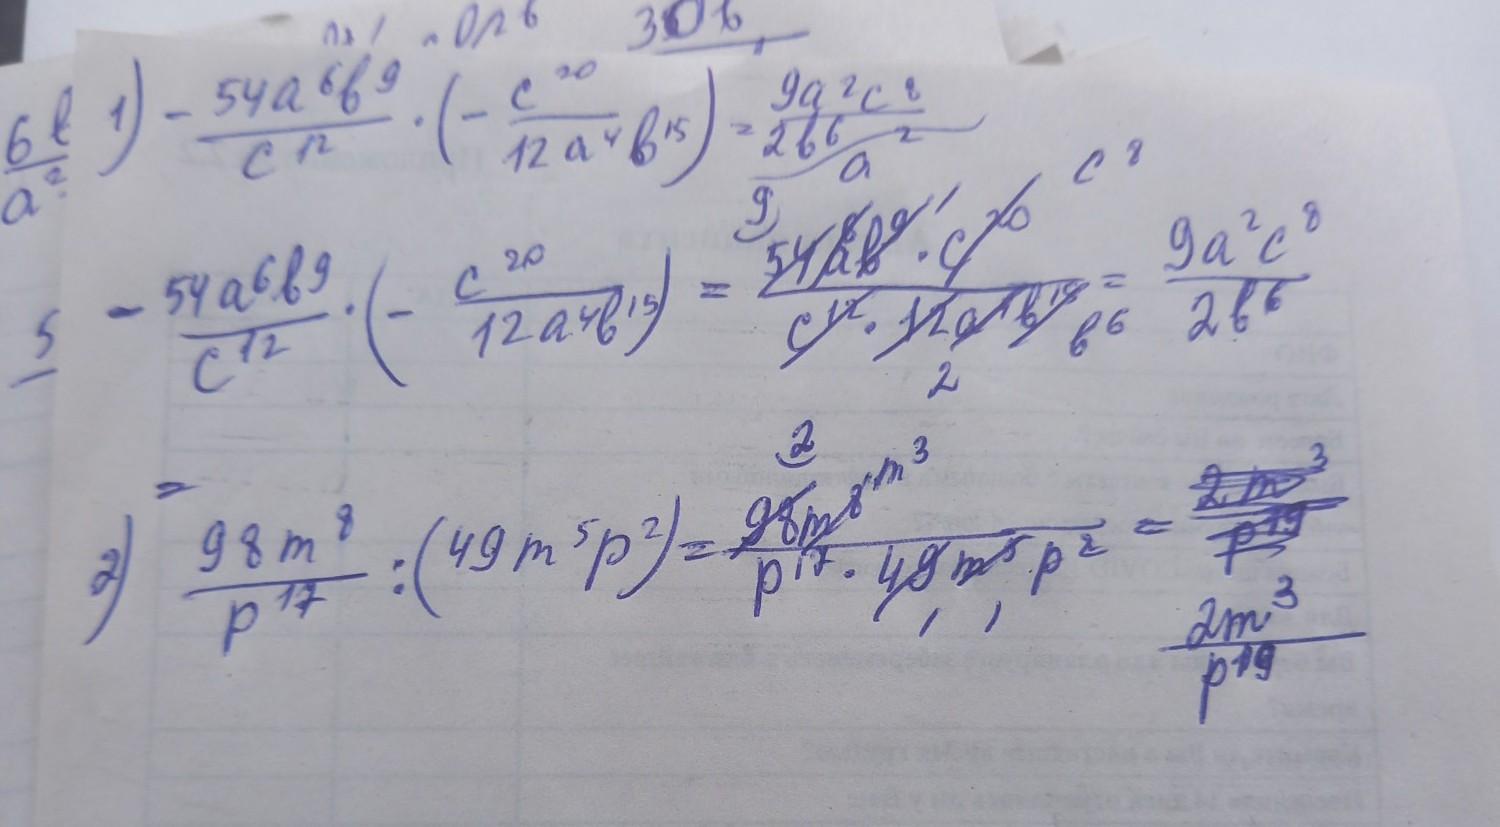 30b
6b/a² 1) - 54a⁶b⁹/c¹² · (- c²⁰/12a⁴b¹⁵) = 9a²c⁸/2b⁶
a²
9 c⁸
5 - 54a⁶b⁹/c¹² · (- c²⁰/12a⁴b¹⁵) = 54a⁶b⁹ · c²⁰/c¹² · 12a⁴b¹⁵ = 9a²c⁸/2b⁶
b⁶
2
=
2 m³
2) 98m⁸/p¹⁷ : (49m⁵p²) = 98m⁸/p¹⁷ · 49m⁵p² = 2m³/p¹⁹
2m³/p¹⁹